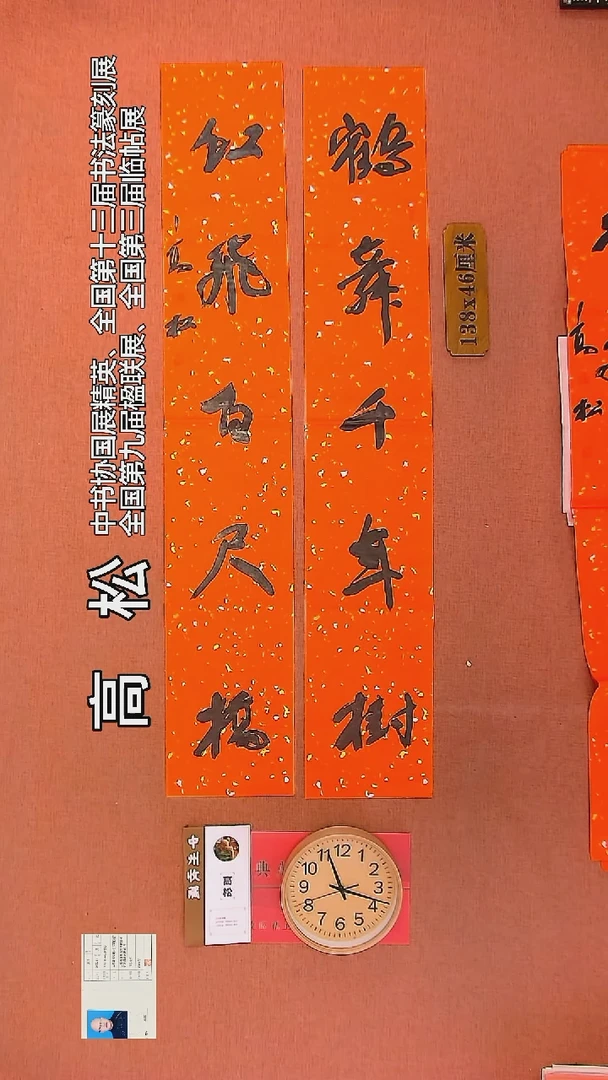 鶴舞千年樹
虹飛百尺橋
高松
高 松
中书协国展精英、全国第十三届书法篆刻展
全国第九届楹联展、全国第三届临帖展
138x46厘米
12
1
2
3
4
5
6
7
8
9
10
11